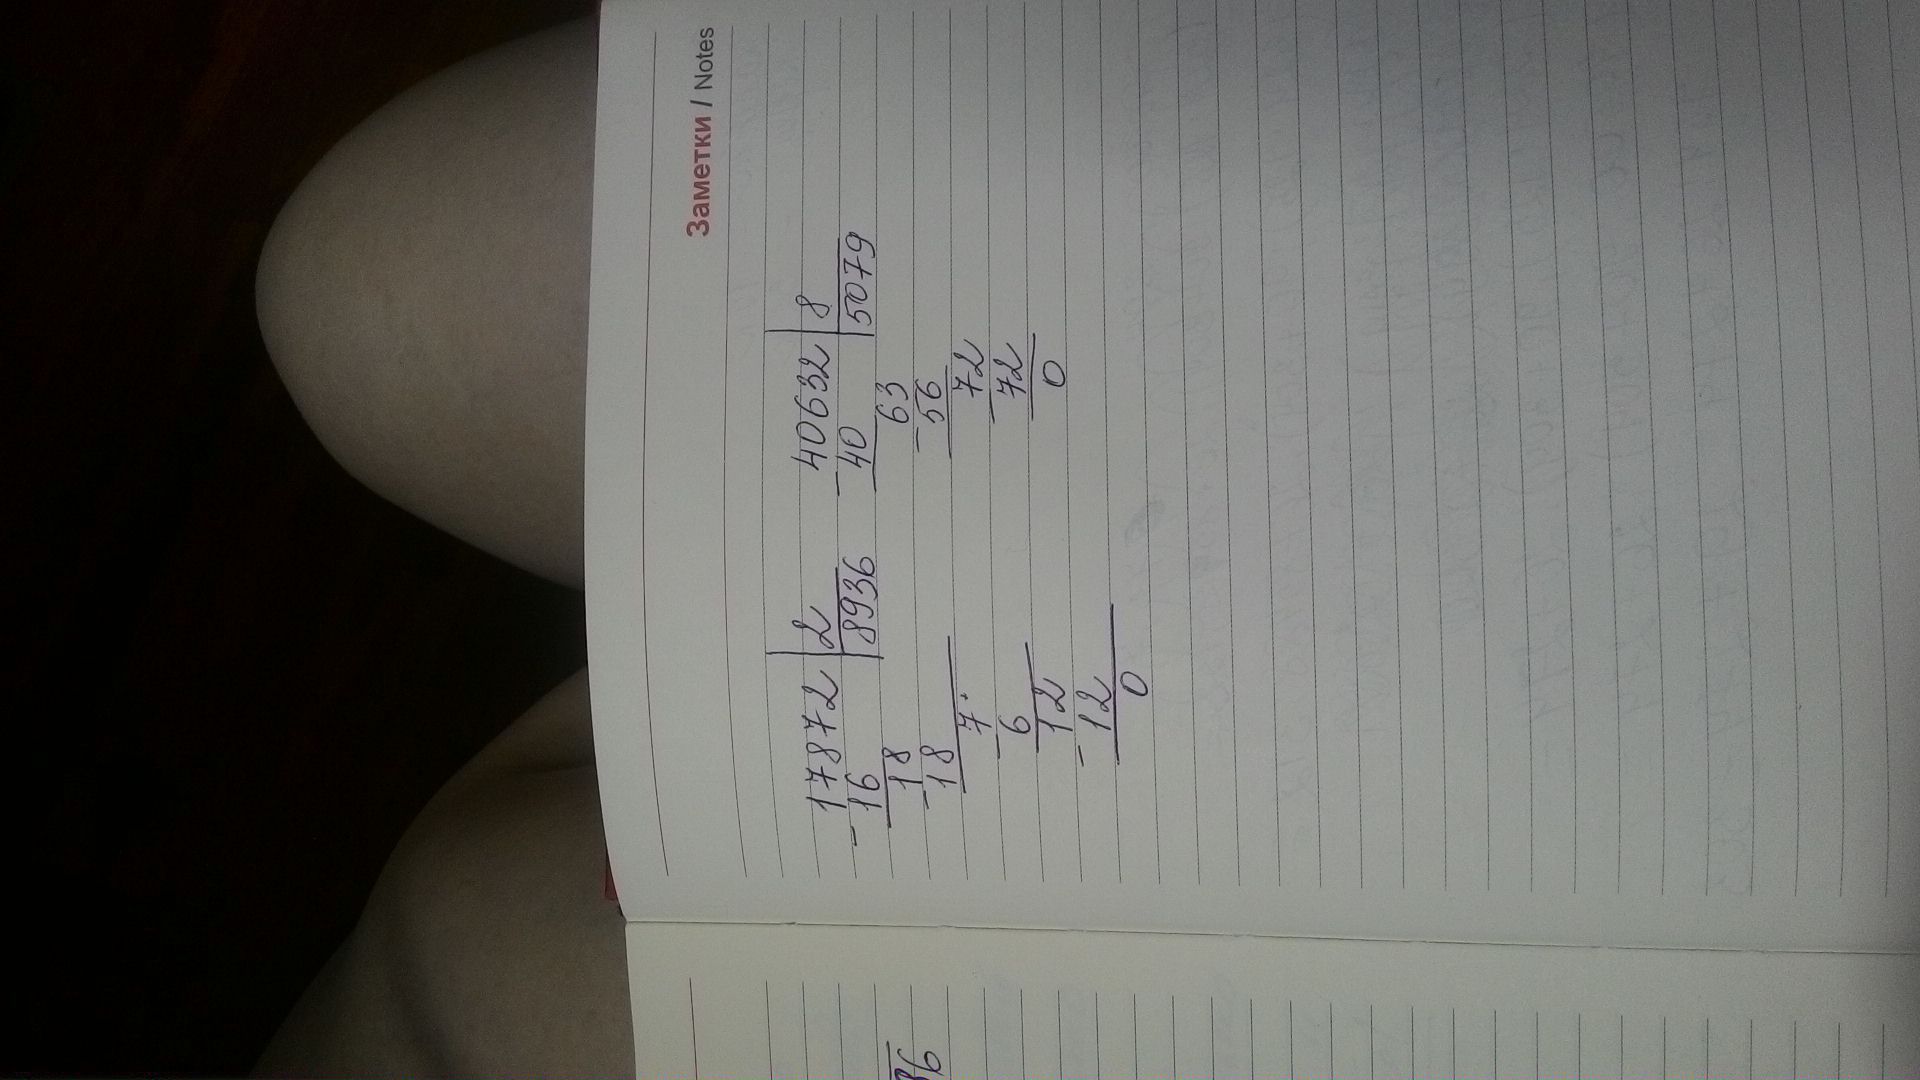 Заметки / Notes
17872 | 2
- 16 | 8936
18
- 18
7
- 6
12
- 12
0
40632 | 8
- 40 | 5079
63
- 56
72
- 72
0
6